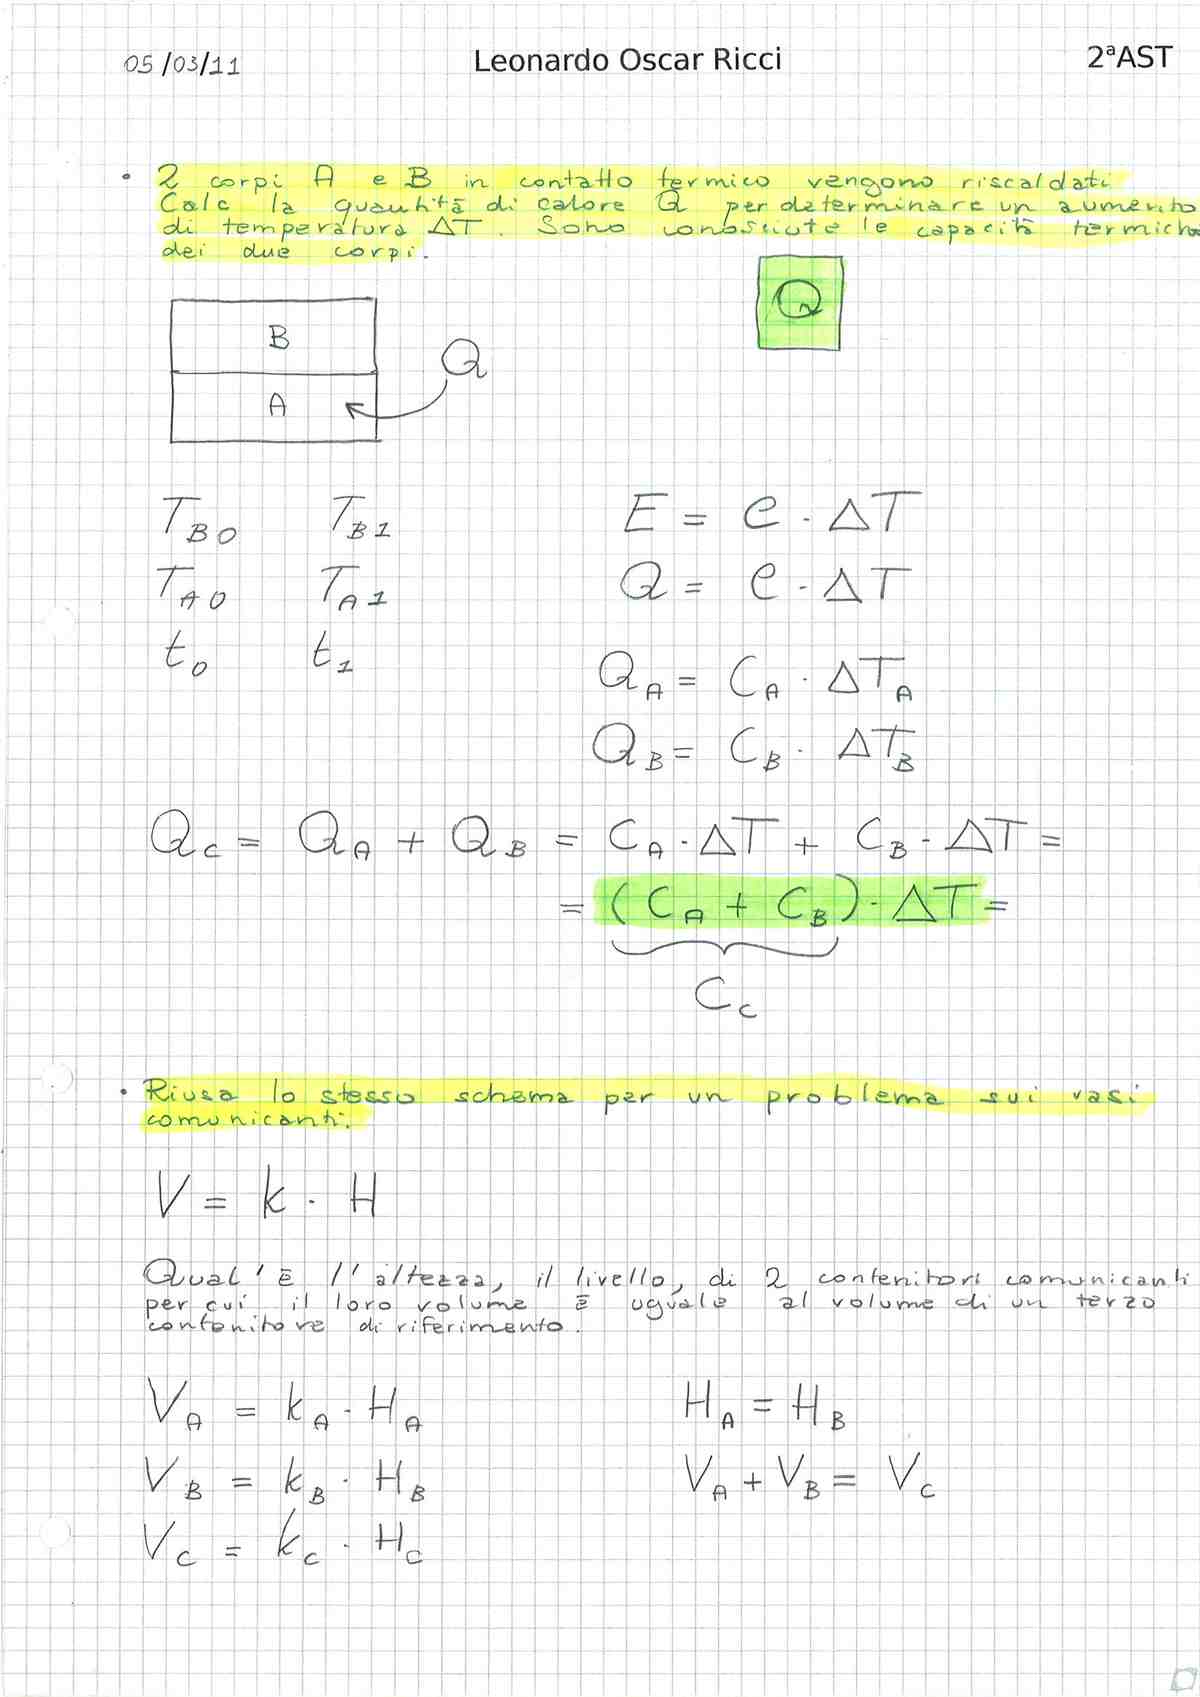 05/03/11 Leonardo Oscar Ricci 2ªAST
• 2 corpi A e B in contatto termico vengono riscaldati
Calc la quantità di calore Q per determinare un aumento
di temperatura ΔT. Sono conosciute le capacità termiche
dei due corpi.
Q
B
Q
A
T_B0 T_B1 E = C · ΔT
T_A0 T_A1 Q = C · ΔT
t_0 t_1
Q_A = C_A · ΔT_A
Q_B = C_B · ΔT_B
Q_C = Q_A + Q_B = C_A · ΔT + C_B · ΔT =
= (C_A + C_B) · ΔT =
C_C
• Riusa lo stesso schema per un problema sui vasi
comunicanti.
V = k · H
Qual'è l'altezza, il livello, di 2 contenitori comunicanti
per cui il loro volume è uguale al volume di un terzo
contenitore di riferimento.
V_A = k_A · H_A H_A = H_B
V_B = k_B · H_B V_A + V_B = V_C
V_C = k_C · H_C